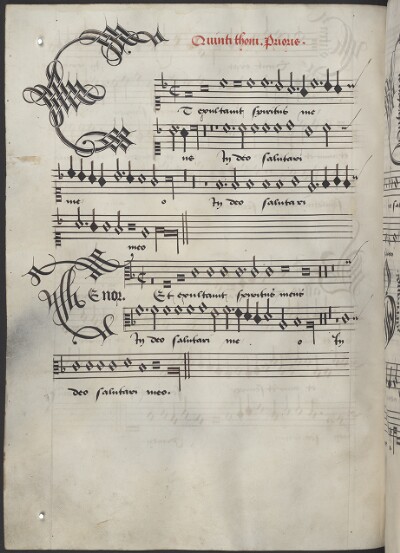 Quinti thoni. Prioris.
Et exultavit spiritus me
us In deo salutari
me o In deo salutari
meo
Tenor. Et exultavit spiritus meus
In deo salutari me o In
deo salutari meo.